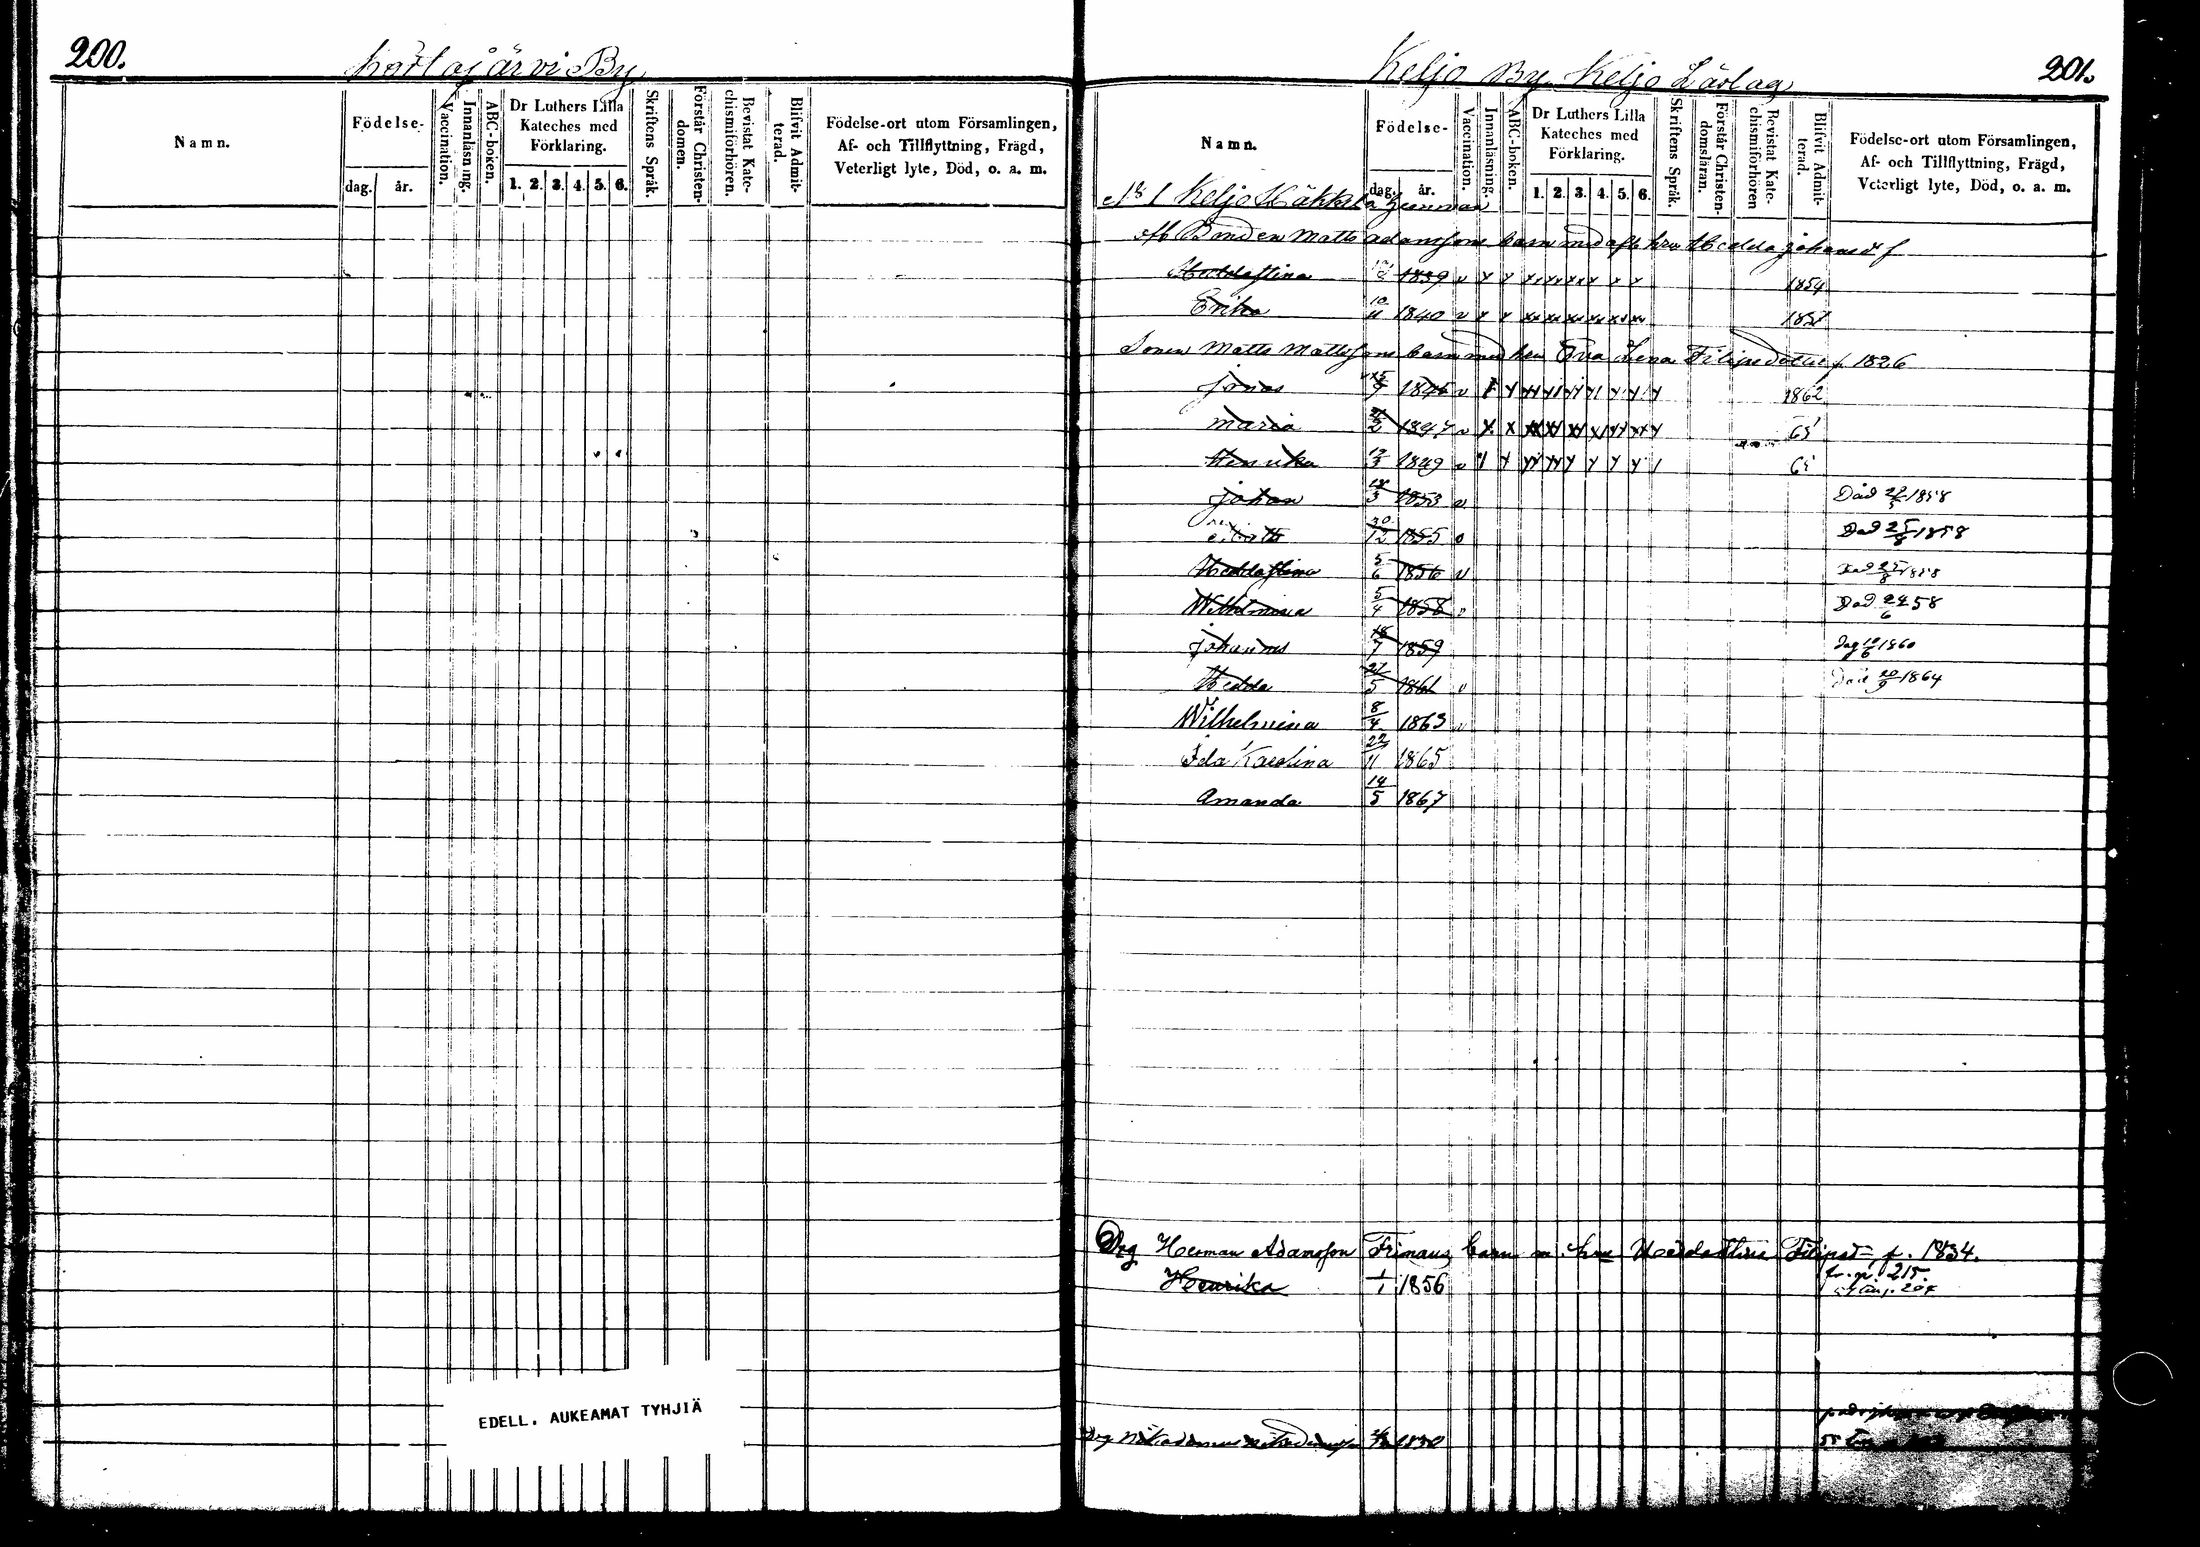 200.
By
Namn.
Födelse-
dag. år.
Vaccination.
Innanläsning.
ABC-boken.
Dr Luthers Lilla
Kateches med
Förklaring.
1. 2. 3. 4. 5. 6.
Skriftens Språk.
Förstår Christen-
domen.
Bevistat Kate-
chismiförhören.
Blifvit Admit-
terad.
Födelse-ort utom Församlingen,
Af- och Tillflyttning, Frägd,
Veterligt lyte, Död, o. a. m.
EDELL. AUKEAMAT TYHJIÄ
Keljo By Keljo Läslag
201.
Namn.
Födelse-
dag. år.
Vaccination.
Innanläsning.
ABC-boken.
Dr Luthers Lilla
Kateches med
Förklaring.
1. 2. 3. 4. 5. 6.
Skriftens Språk.
Förstår Christen-
domsläran.
Bevistat Kate-
chismiförhören
Blifvit Admit-
terad.
Födelse-ort utom Församlingen,
Af- och Tillflyttning, Frägd,
Veterligt lyte, Död, o. a. m.
1 Keljo hemman
Bonden Matts Adamssons barn med hru Hedda Johansd
Heddastina 1839 v 1854
Erika 10/11 1840 v 1857
Sonen Matts Mattssons barn med hru Eva Lena Filipsdotter f. 1826
Jonas 1846 v 1862
Maria 1847 v
Henrika 12/3 1849 v
Johan 18/3 1853 v Död 1858
30/12 1855 Död 25/8 1858
Heddastina 5/6 1856 v Död 25/8 1858
Wilhelmina 5/4 1858 v Död 24/6 58
Johannes 18/7 1859 1860
Hedda 21/5 1861 v Död 20/9 1864
Wilhelmina 8/4 1863 v
Ida Karolina 22/11 1865
Amanda 14/5 1867
Drg Herman Adamsson Frimans barn m. hru Heddastina Filipsd f. 1834.
Henrika 1/1 1856 fr. p. 215.